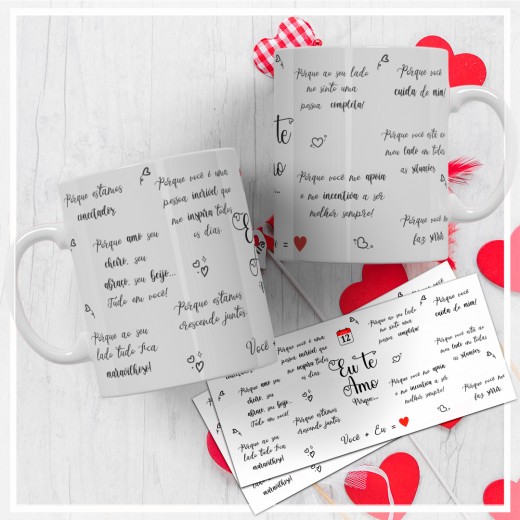 Porque estamos
conectados
Porque você é uma
pessoa incrível que
me inspira todos
os dias.
Porque amo seu
cheiro, seu
abraço, seu beijo...
Tudo em você!
Porque estamos
crescendo juntos.
Porque ao seu
lado tudo fica
maravilhoso!
Você +
te
Porque ao seu lado
me sinto uma
pessoa completa!
Porque você
cuida de mim!
Porque você está ao
meu lado em todas
as situações
Porque você me apoia
e me incentiva a ser
melhor sempre!
Porque você me
faz sorrir
=
Porque você é uma
pessoa incrível que
me inspira todos
os dias.
Porque amo seu
cheiro, seu
abraço, seu beijo...
Tudo em você!
Porque estamos
crescendo juntos.
Porque ao seu
lado tudo fica
maravilhoso!
12
Eu te
Amo
Porque...
Você + Eu =
Porque ao seu lado
me sinto uma
pessoa completa!
Porque você
cuida de mim!
Porque você está ao
meu lado em todas
as situações
Porque você me apoia
e me incentiva a ser
melhor sempre!
Porque você me
faz sorrir
maravilhoso!